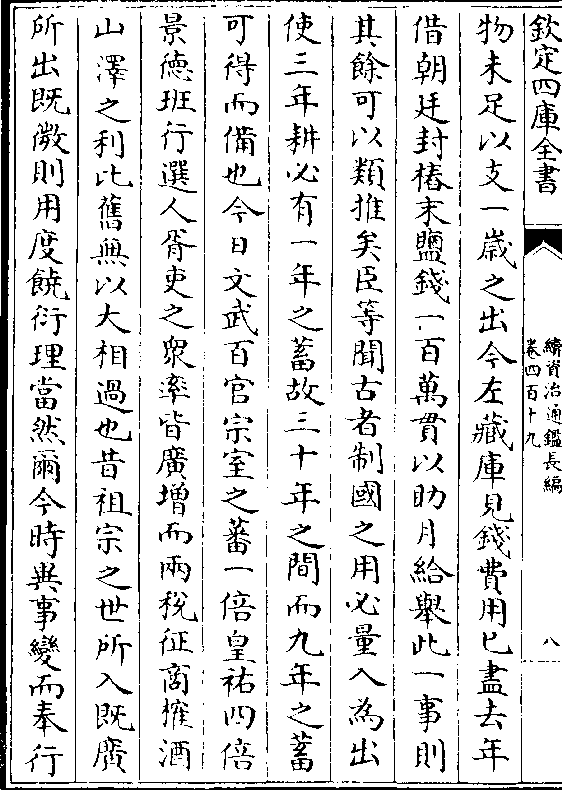 欽定四庫全書
續資治通鑑長編
卷四百十九
八
物未足以支一歲之出今左藏庫見錢費用已盡去年
借朝廷封樁末鹽錢一百萬貫以助月給舉此一事則
其餘可以類推矣臣等聞古者制國之用必量入為出
使三年耕必有一年之蓄故三十年之間而九年之蓄
可得而備也今日文武百官宗室之蕃一倍皇祐四倍
景德班行選人胥吏之衆率皆廣增而兩稅征商搉酒
山澤之利比舊無以大相過也昔祖宗之世所入既廣
所出既微則用度饒衍理當然爾今時異事變而奉行